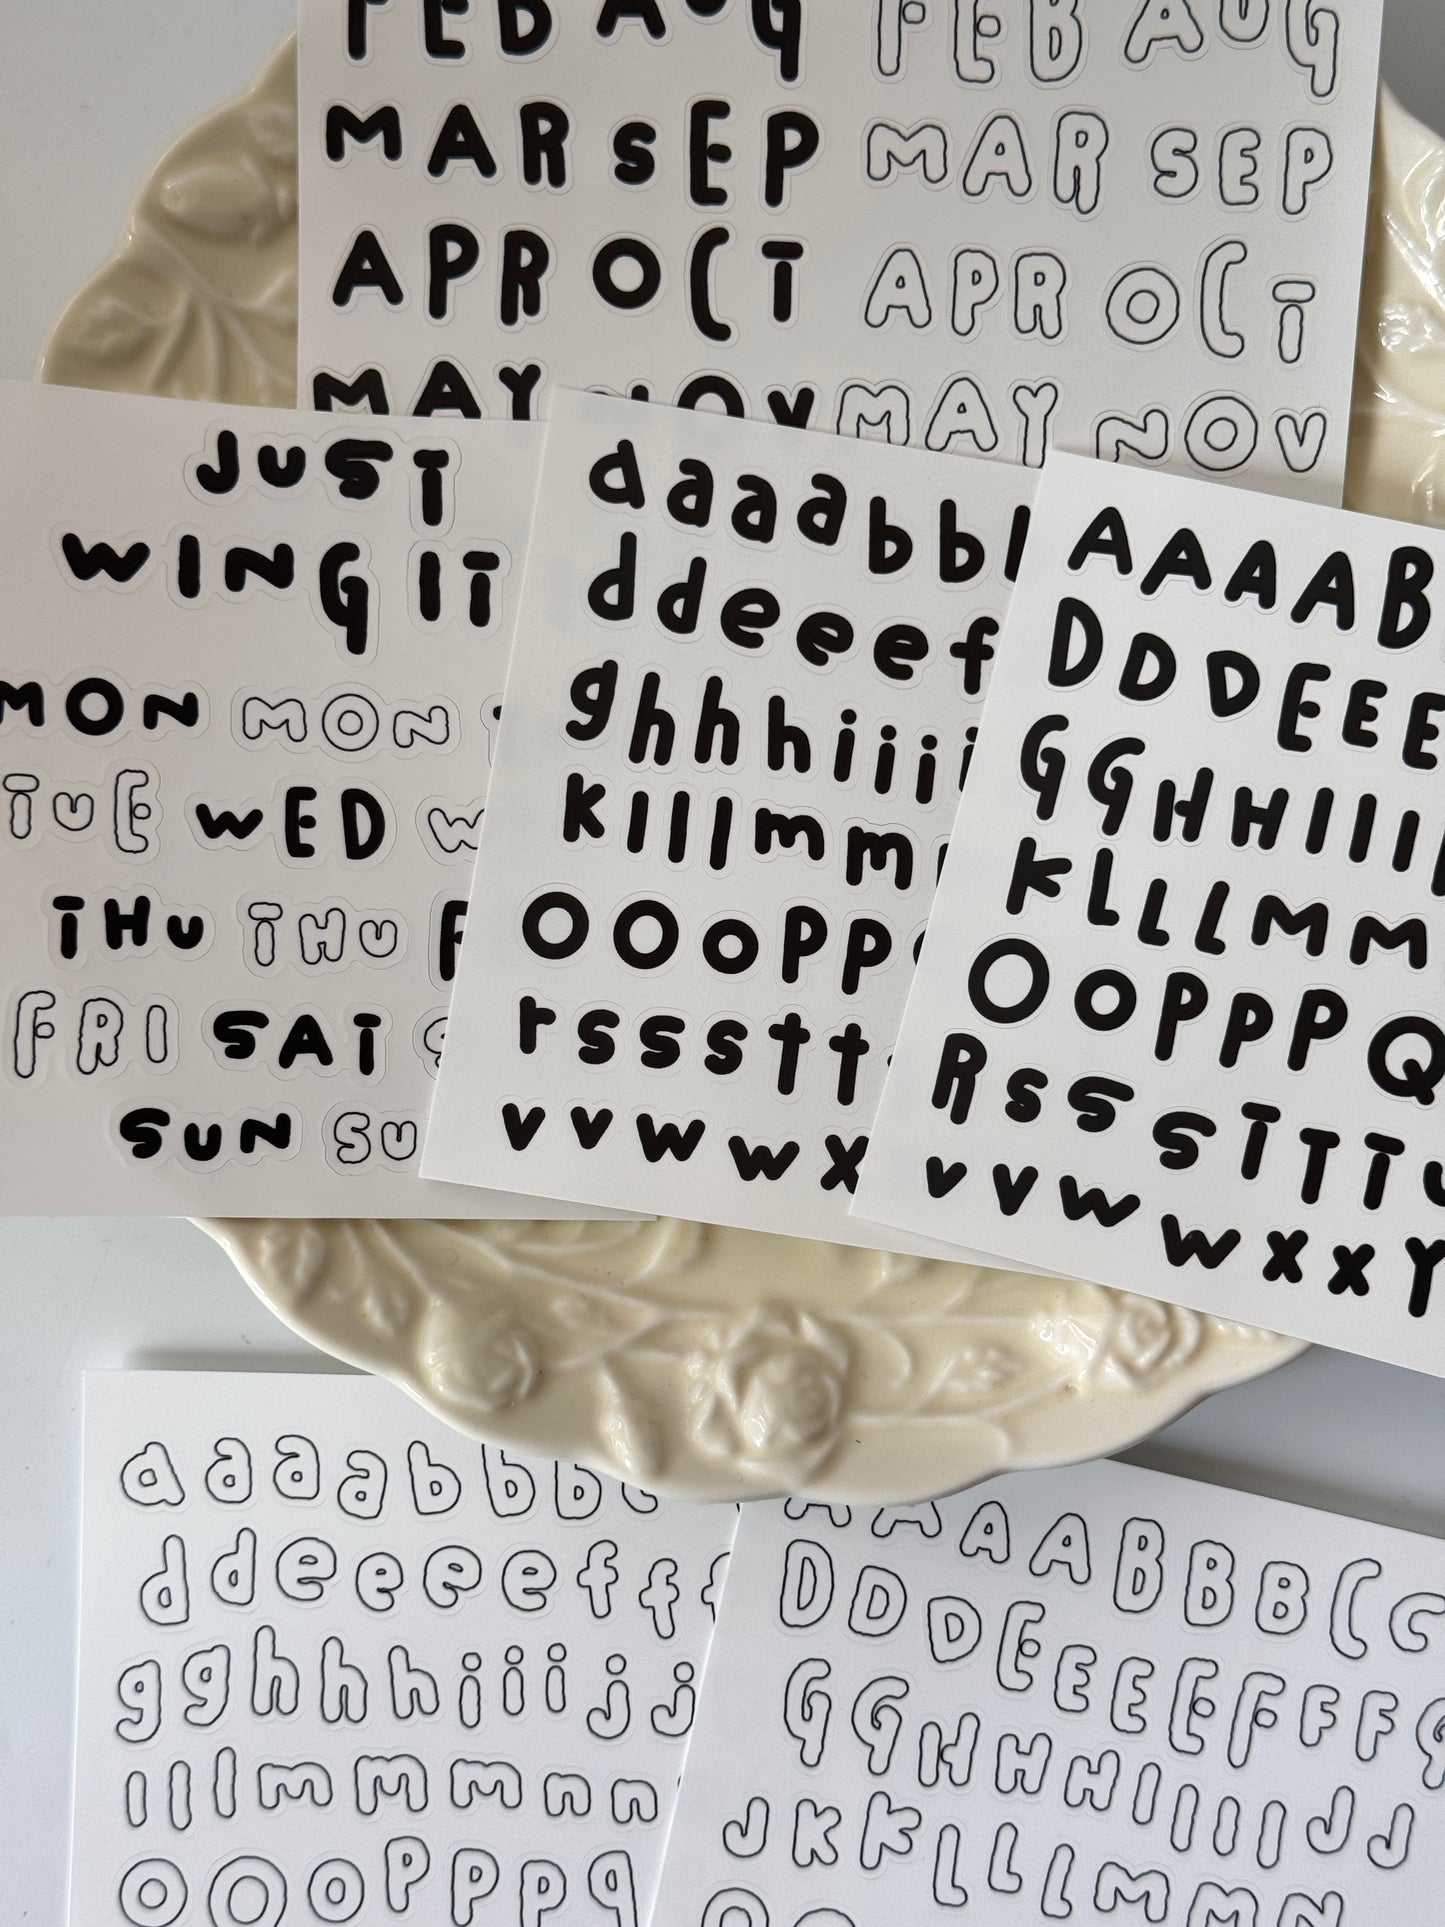 FEB AUG FEB AUG
MAR SEP MAR SEP
APR OCT APR OCT
MAY NOV MAY NOV
JUST
WING IT
MON MON
TUE WED W
THU THU F
FRI SAT S
SUN SU
a a a a b b
d d e e e f
g h h h i i i i
k l l l m m
O O o p p
r s s s t t
v v w w x
A A A A B
D D D E E E
G G H H I I I
K L L L M M
O O P P P Q
R S S S T T T
V V W W X X Y
a a a a b b b c
d d e e e e f f f
g g h h h i i i j j
l l l m m m n n
o o o p p p q
A A A A B B B C C
D D D E E E E F F F G
G G H H H I I I I J J
J K K L L L M M N